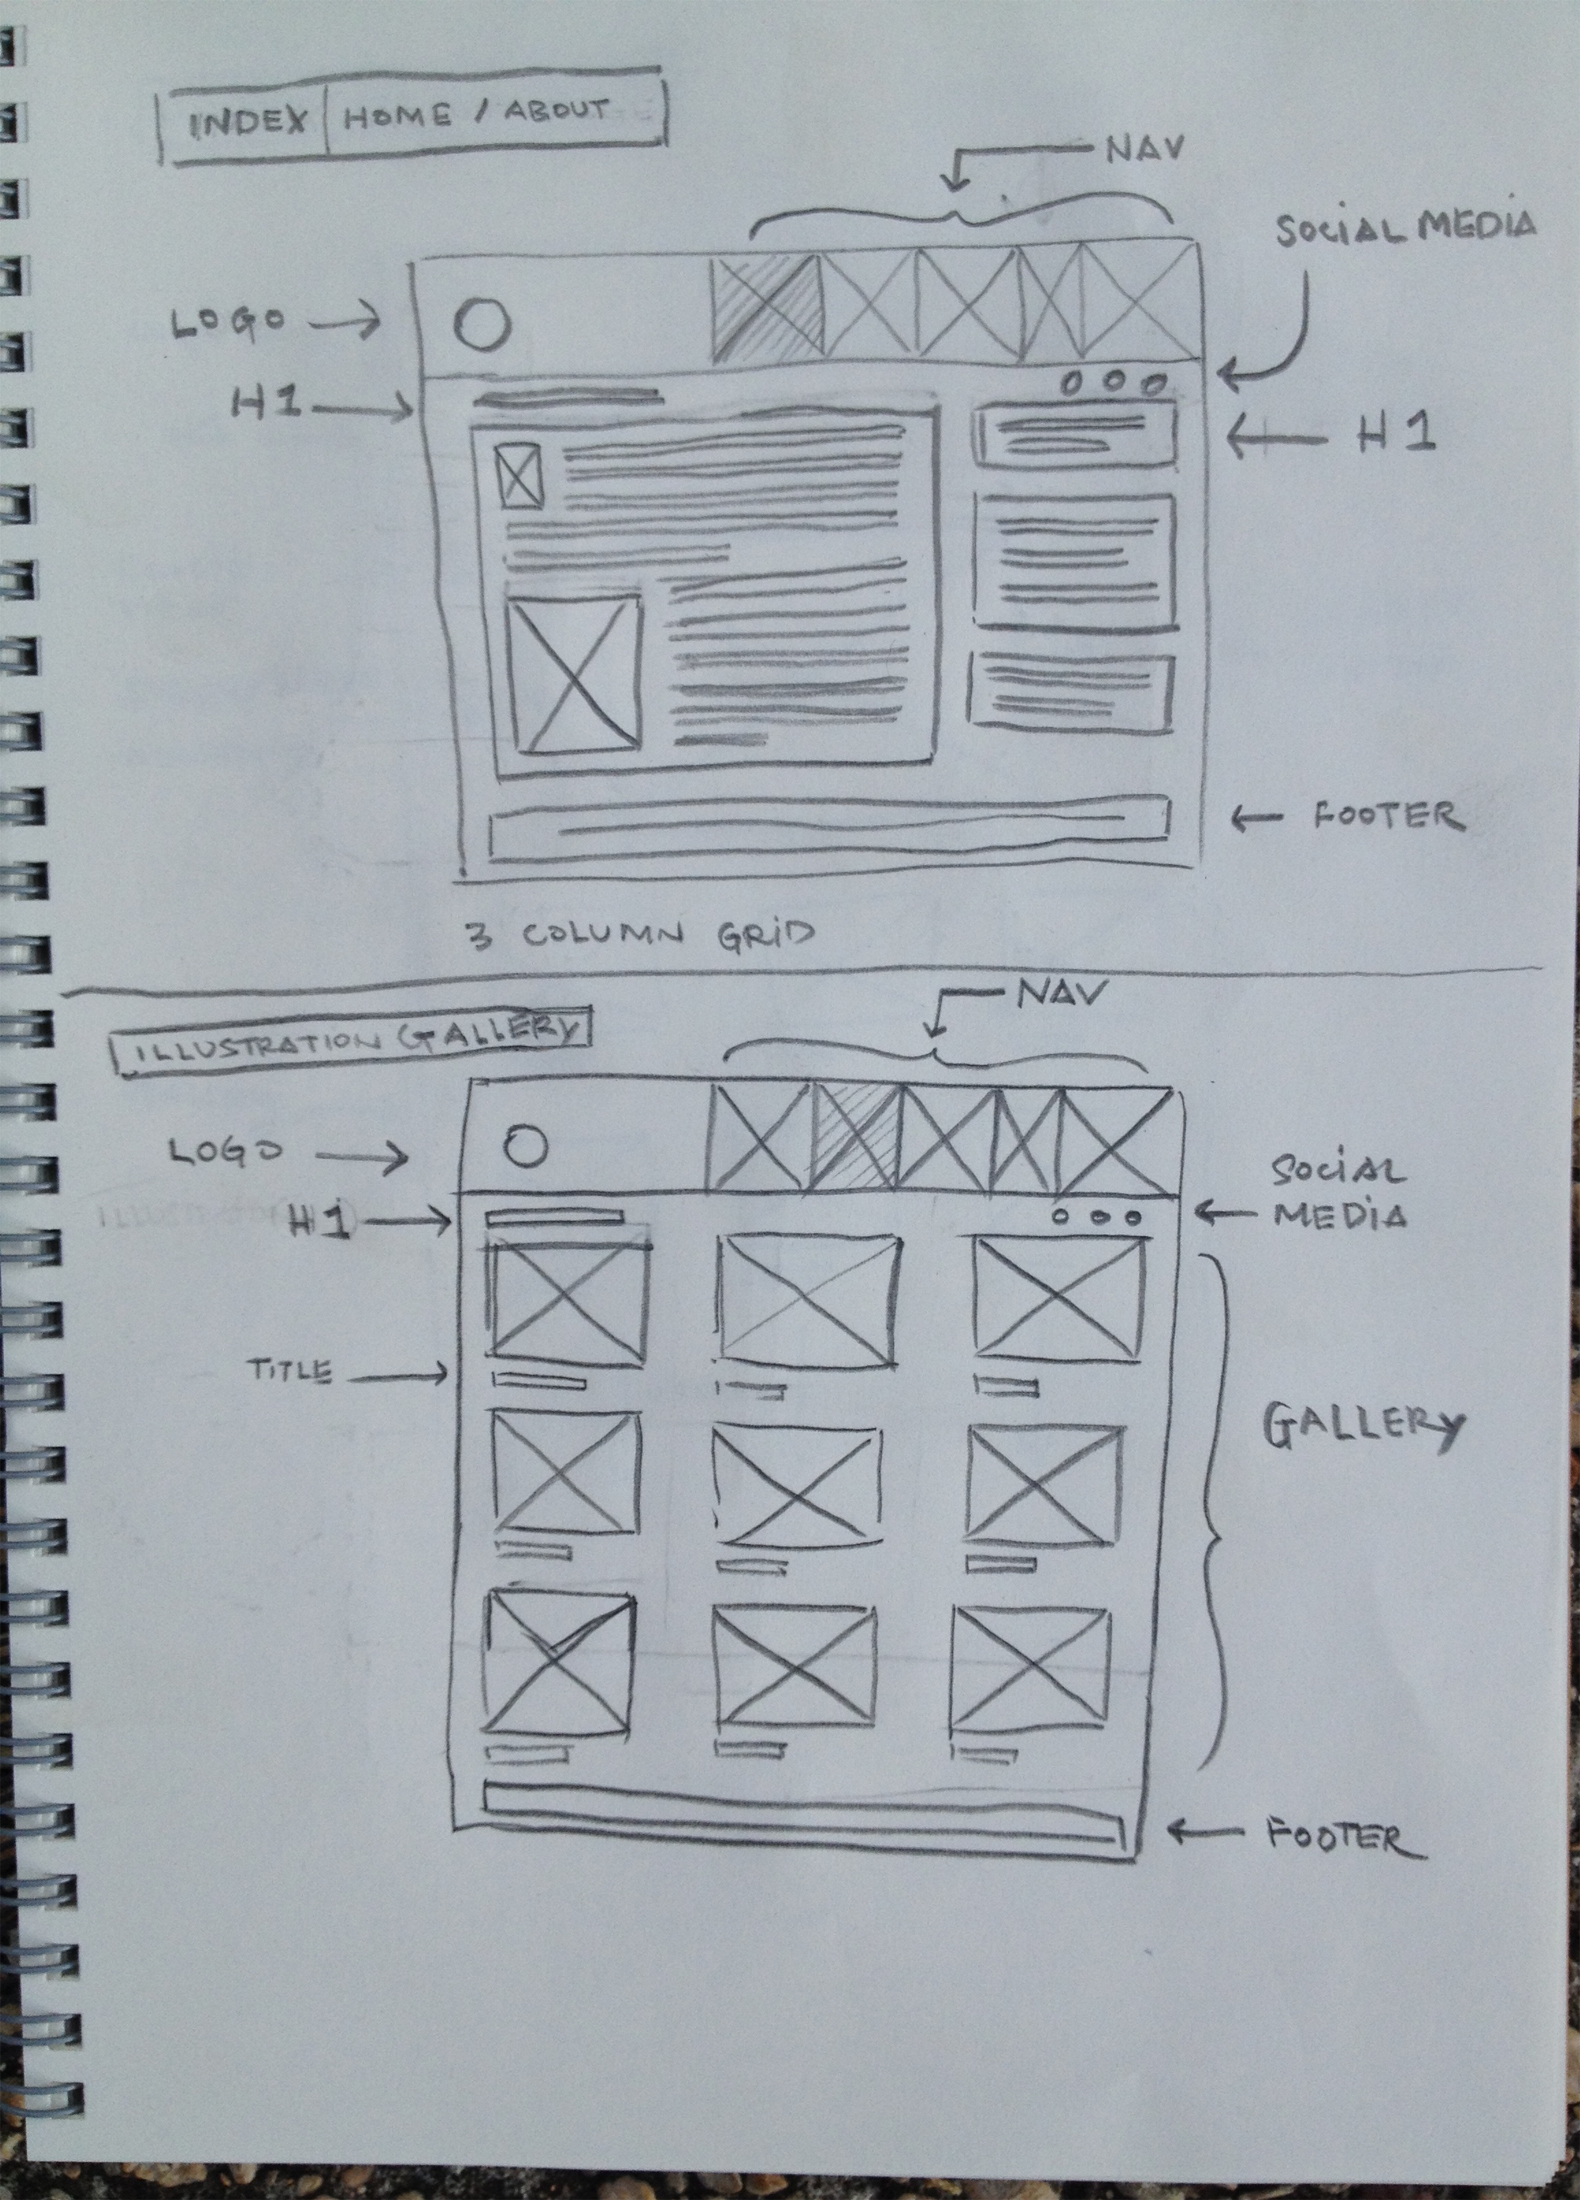 INDEX HOME / ABOUT
NAV
SOCIAL MEDIA
LOGO
H1
H1
FOOTER
3 COLUMN GRID
NAV
ILLUSTRATION GALLERY
LOGO
SOCIAL
MEDIA
H1
TITLE
GALLERY
FOOTER